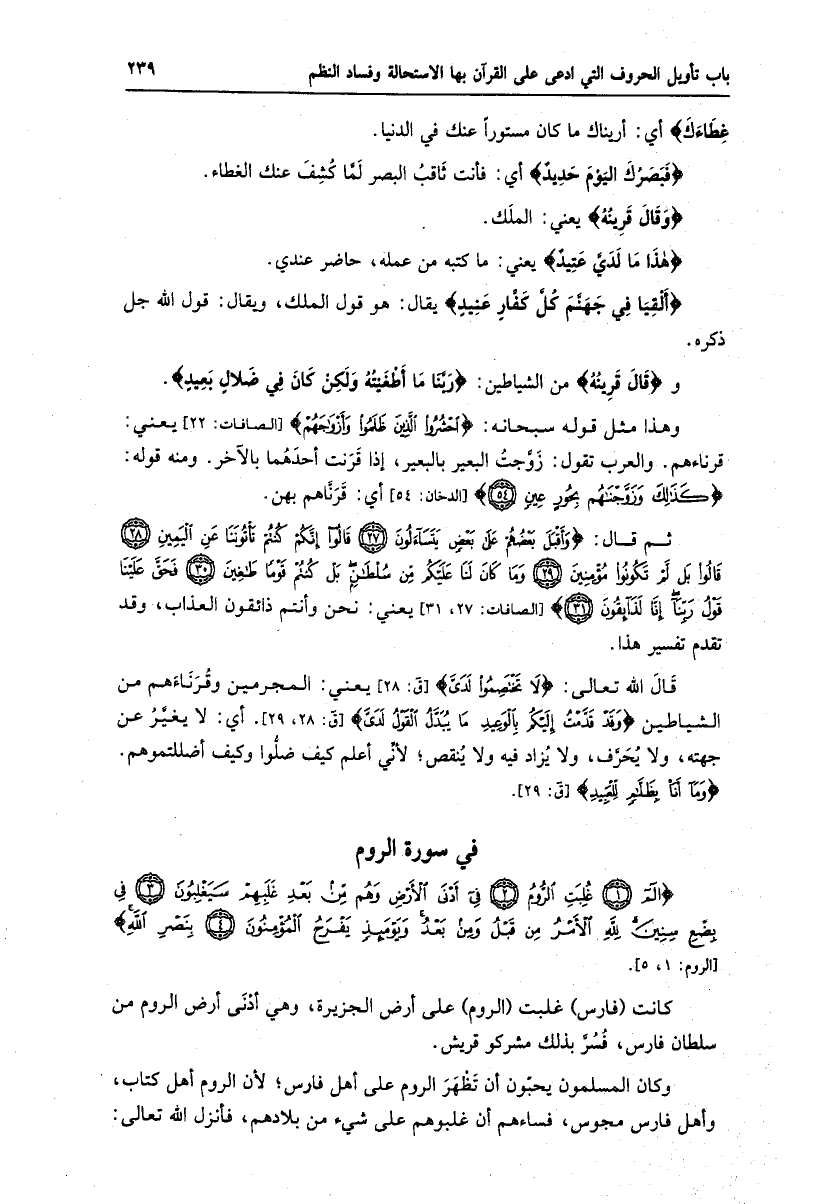 باب تأويل الحروف التي ادعى على القرآن بها الاستحالة وفساد النظم ٢٣٩
غِطَاءَكَ﴾ أي: أريناك ما كان مستوراً عنك في الدنيا.
﴿فَبَصَرُكَ اليَوْمَ حَدِيدٌ﴾ أي: فأنت ثَاقبُ البصر لَمَّا كُشِفَ عنك الغطاء.
﴿وَقَالَ قَرِينُهُ﴾ يعني: الملَك.
﴿هٰذَا مَا لَدَيَّ عَتِيدٌ﴾ يعني: ما كتبه من عمله، حاضر عندي.
﴿أَلْقِيَا فِي جَهَنَّمَ كُلَّ كَفَّارٍ عَنِيدٍ﴾ يقال: هو قول الملك، ويقال: قول الله جل
ذكره.
و ﴿قَالَ قَرِينُهُ﴾ من الشياطين: ﴿رَبَّنَا مَا أَطْغَيْتُهُ وَلَكِنْ كَانَ فِي ضَلالٍ بَعِيدٍ﴾.
وهذا مثل قوله سبحانه: ﴿ٱحْشُرُوا۟ ٱلَّذِينَ ظَلَمُوا۟ وَأَزْوَٰجَهُمْ﴾ [الصافات: ٢٢] يعني:
قرناءهم. والعرب تقول: زَوَّجتُ البعير بالبعير، إذا قَرَنت أحدَهُما بالآخر. ومنه قوله:
﴿كَذَٰلِكَ وَزَوَّجْنَٰهُم بِحُورٍ عِينٍ ۝٥٤﴾ [الدخان: ٥٤] أي: قَرَنَّاهم بهن.
ثم قال: ﴿وَأَقْبَلَ بَعْضُهُمْ عَلَىٰ بَعْضٍ يَتَسَآءَلُونَ ۝٢٧ قَالُوٓا۟ إِنَّكُمْ كُنتُمْ تَأْتُونَنَا عَنِ ٱلْيَمِينِ ۝٢٨
قَالُوا۟ بَل لَّمْ تَكُونُوا۟ مُؤْمِنِينَ ۝٢٩ وَمَا كَانَ لَنَا عَلَيْكُم مِّن سُلْطَٰنٍۭ بَلْ كُنتُمْ قَوْمًا طَٰغِينَ ۝٣٠ فَحَقَّ عَلَيْنَا
قَوْلُ رَبِّنَآ إِنَّا لَذَآئِقُونَ ۝٣١﴾ [الصافات: ٢٧، ٣١] يعني: نحن وأنتم ذائقون العذاب، وقد
تقدم تفسير هذا.
قَالَ الله تعالى: ﴿لَا تَخْتَصِمُوا۟ لَدَىَّ﴾ [قَ: ٢٨] يعني: المجرمين وقُرَنَاءَهم من
الشياطين ﴿وَقَدْ قَدَّمْتُ إِلَيْكُم بِٱلْوَعِيدِ مَا يُبَدَّلُ ٱلْقَوْلُ لَدَىَّ﴾ [قَ: ٢٨، ٢٩]. أي: لا يغيَّرُ عن
جهته، ولا يُحَرَّف، ولا يُزاد فيه ولا يُنقص؛ لأنِّي أعلم كيف ضلُّوا وكيف أضللتموهم.
﴿وَمَآ أَنَا۠ بِظَلَّٰمٍ لِّلْعَبِيدِ﴾ [قَ: ٢٩].
في سورة الروم
﴿الٓمٓ ۝١ غُلِبَتِ ٱلرُّومُ ۝٢ فِىٓ أَدْنَى ٱلْأَرْضِ وَهُم مِّنۢ بَعْدِ غَلَبِهِمْ سَيَغْلِبُونَ ۝٣ فِى
بِضْعِ سِنِينَ ۗ لِلَّهِ ٱلْأَمْرُ مِن قَبْلُ وَمِنۢ بَعْدُ ۚ وَيَوْمَئِذٍ يَفْرَحُ ٱلْمُؤْمِنُونَ ۝٤ بِنَصْرِ ٱللَّهِ ۚ﴾
[الروم: ١، ٥].
كانت (فارس) غلبت (الروم) على أرض الجزيرة، وهي أدْنَى أرض الروم من
سلطان فارس، فُسُرَّ بذلك مشركو قريش.
وكان المسلمون يحبّون أن تَظْهَرَ الروم على أهل فارس؛ لأن الروم أهل كتاب،
وأهل فارس مجوس، فساءهم أن غلبوهم على شيء من بلادهم، فأنزل الله تعالى: